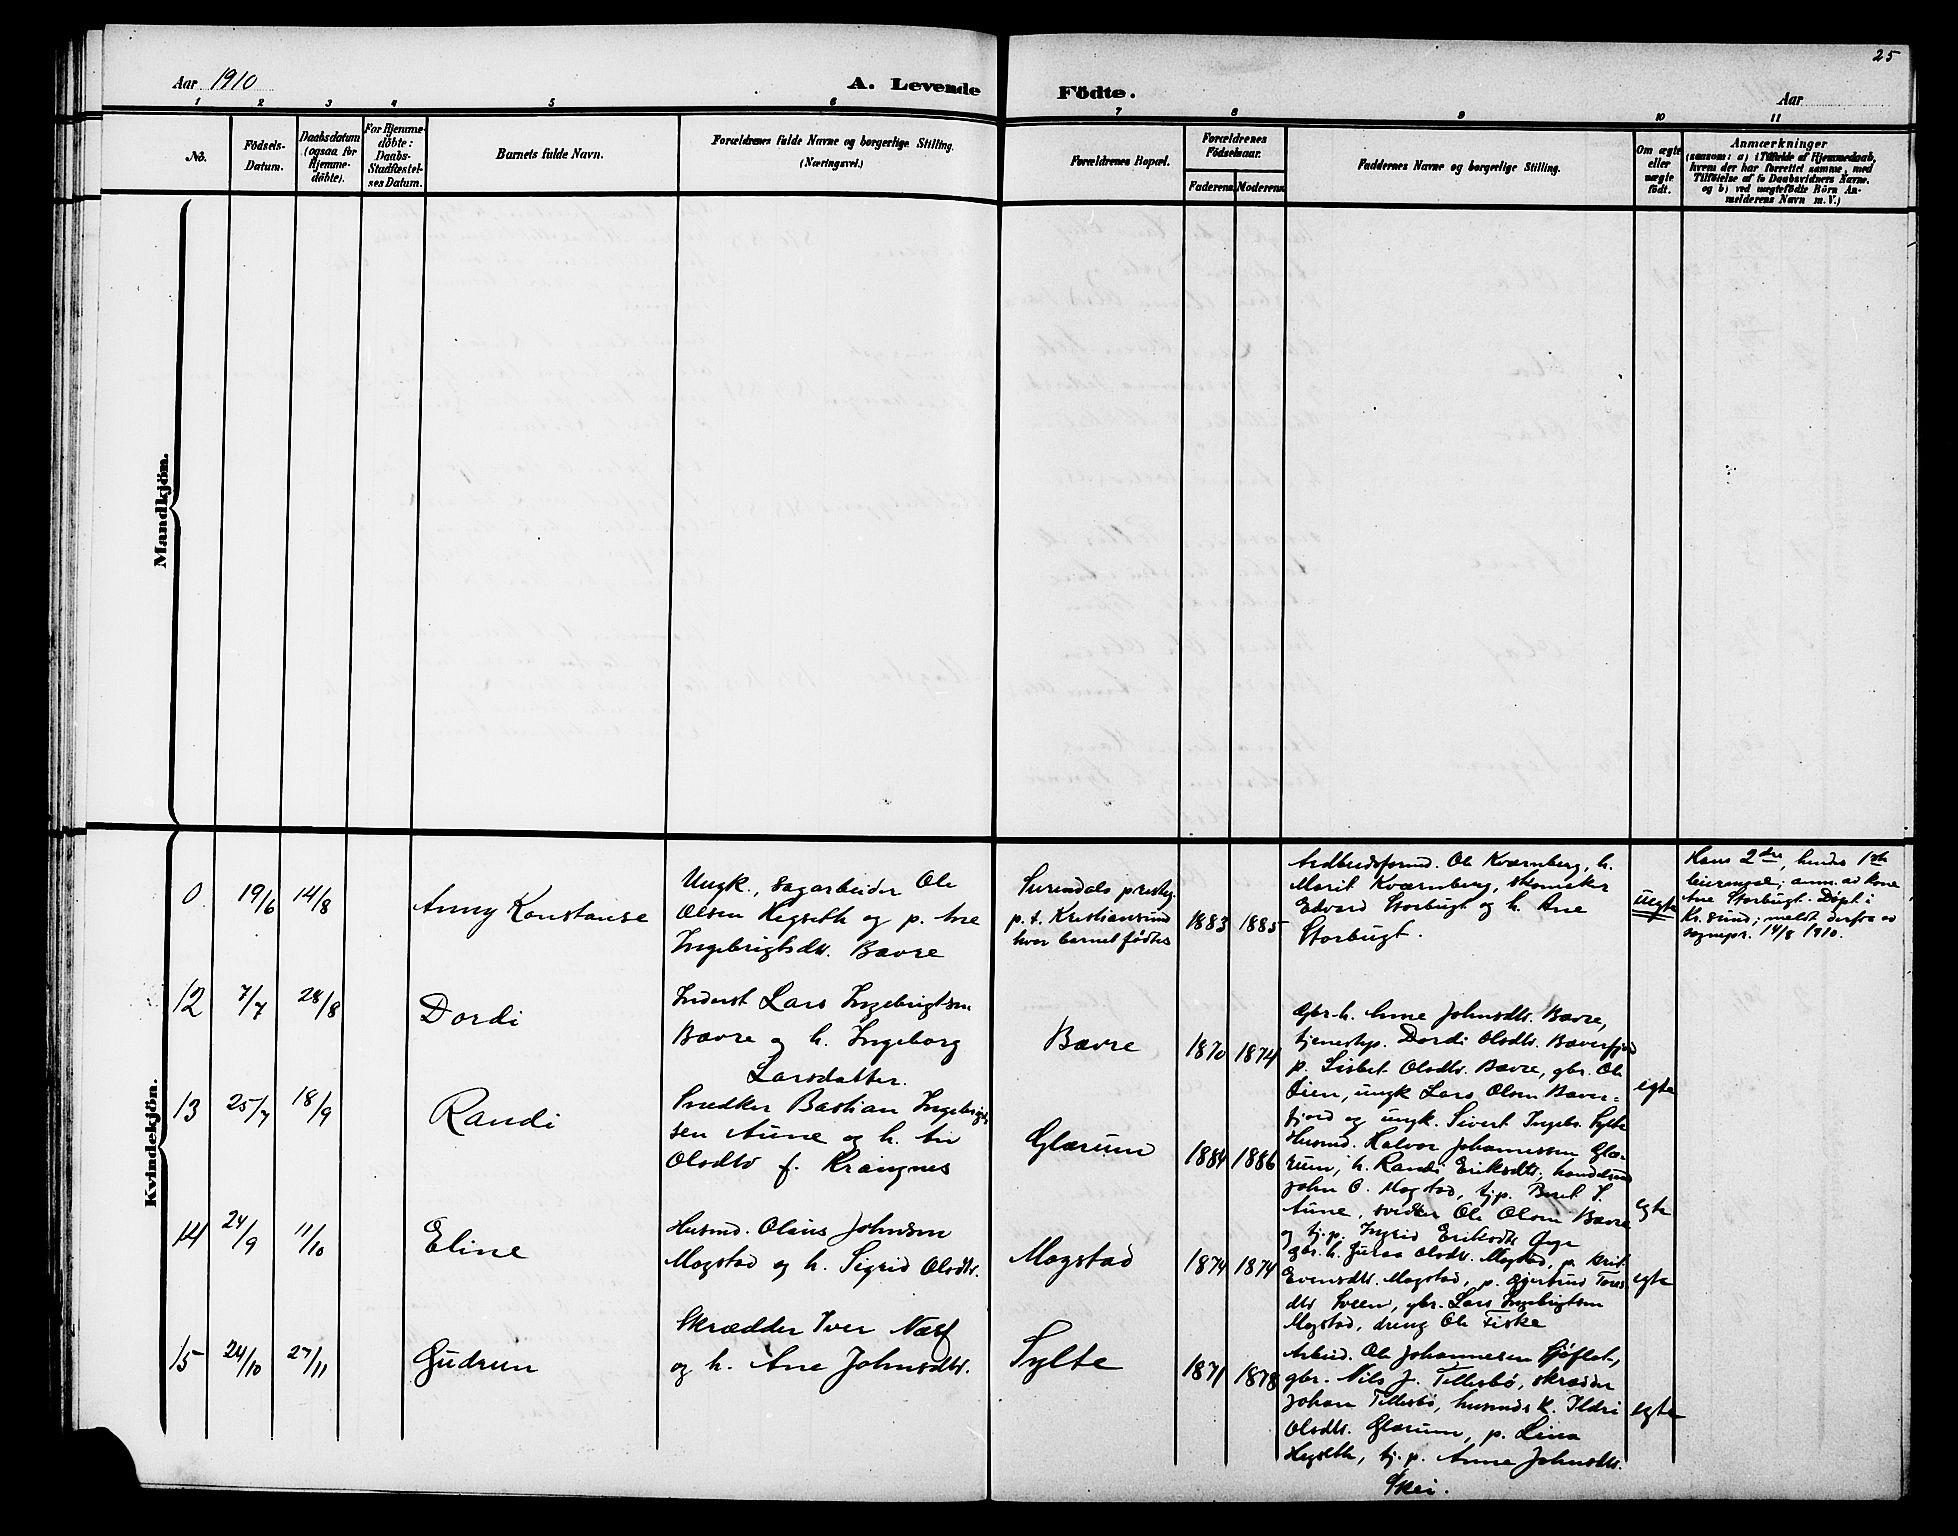 25
Aar 1910
A. Levende
Födte.
Aar
1 2 3 4 5 6 7 8 9 10 11
No.
Födsels-
Datum.
Daabsdatum
(ogsaa for
Hjemme-
döbte).
For Hjemme-
döbte:
Daabs-
Stadfæstel-
ses Datum.
Barnets fulde Navn.
Forældrenes fulde Navne og borgerlige Stilling.
(Næringsvei.)
Forældrenes Bopæl.
Forældrenes
Födselsaar.
Faderens.
Moderens.
Faddernes Navne og borgerlige Stilling.
Om ægte
eller
uægte
født.
Anmærkninger
(saasom: a) i Tilfælde af Hjemmedaab,
hvem der har forrettet samme, med
Tilføielse af to Daabsvidners Navne.
og b) ved uægtefødte Börn An-
melderens Navn m. V.)
Mandkjön.
Kvindekjön.
0 19/6 14/8
Anny Konstanse
Ungk., sagarbeider Ole
Olsen Hegseth og p. Ane
Ingebrigtsdtr. Bævre
Surendals prestgj.
p. t. Kristiansund
hvor barnet fødtes
1883 1885
Ole Kværnberg, h.
Marit Kværnberg, skomaker
Edvard Storbugt og h. Ane
Storbugt.
uegte
Hans 2den, hendes 1ste
leiermaal; anm. av kone
Ane Storbugt. Døpt i
Kr.sund; meldt derfra av
sognepr. 14/8 1910.
12 7/7 28/8
Dordi
Inderst Lars Ingebrigtsen
Bævre og h. Ingeborg
Larsdatter.
Bævre
1870 1874
Gbr. h. Anne Johnsdtr. Bævre,
tjenestep. Dordi Olsdtr. Bæverfjord
p. Lisbet Olsdtr. Bævre, gbr. Ole
Øien, ungk Lars Olsen Bæver-
fjord og ungk. Sivert Ingebr. Sylte
egte
13 25/7 18/9
Randi
Snedker Bastian Ingebrigt-
sen Aune og h. An
Olsdtr f. Krangnes
Glærum
1884 1886
Husmd. Halvor Johannessen Glæ-
rum, h. Randi Eriksdtr., handelsmd
John O. Mogstad, tjp. Beret I.
Aune, snedker Ole Olsen Bævre
og tj.p. Ingrid Eriksdtr
egte
14 24/9 11/10
Eline
Husmd. Olaus Johnsen
Mogstad og h. Sigrid Olsdtr.
Mogstad
1874 1874
gbr. h. Guraa Olsdtr. Mogstad, p. Brit
Evensdtr. Mogstad, p. Gjertrud Tores-
dtr Sveen, gbr. Lars Ingebrigtsen
Mogstad, dreng Ole Fiske
egte
15 24/10 27/11
Gudrun
Skrædder Iver Næss
og h. Ane Johnsdtr.
Sylte
1871 1878
Arbeid. Ole Johannesen Sjøflot,
gbr. Nils J. Tellesbø, skrædder
Johan Tellesbø, husmds k. Ildri
Olsdtr. Glærum, p. Lina
Hegseth, tj. p. Anne Johnsdtr.
Skei.
egte